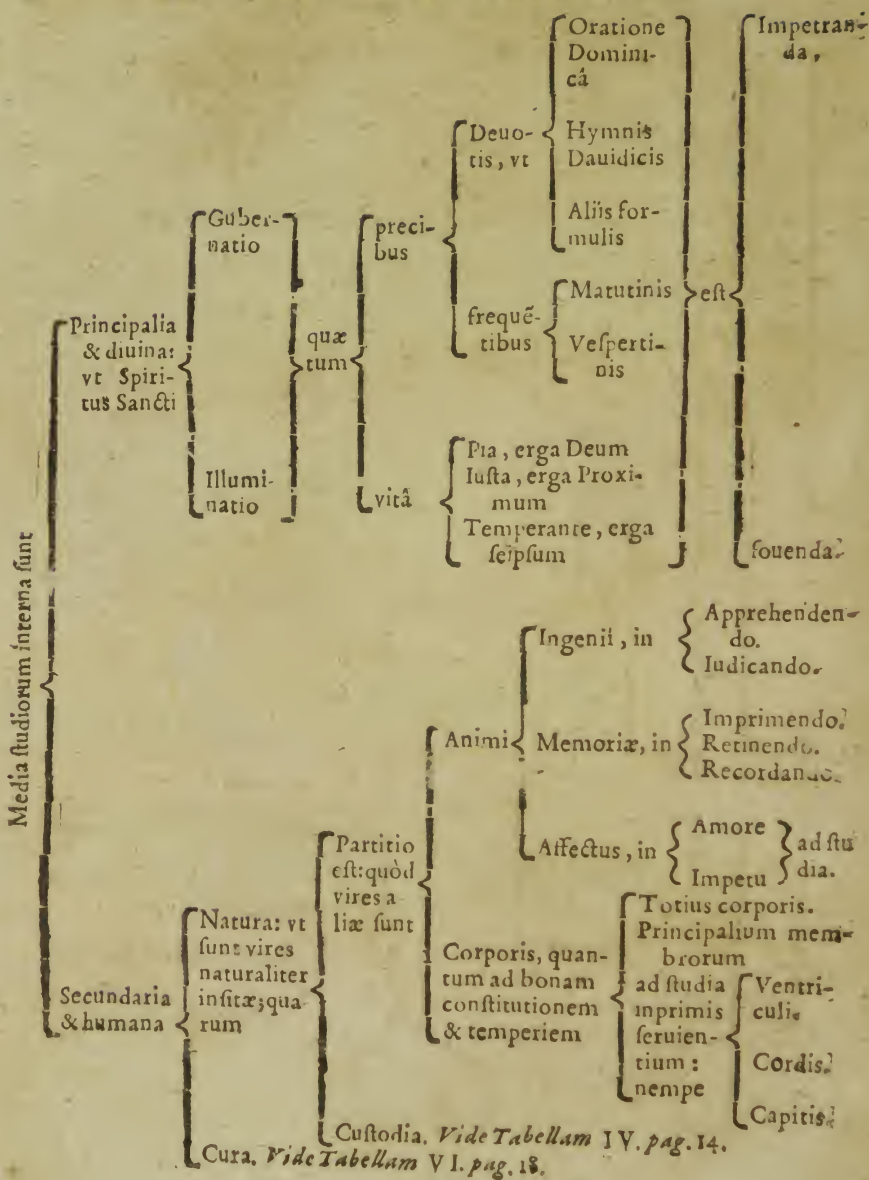 Media studiorum interna sunt
Principalia
& diuina:
vt Spiri-
tus Sancti
Guber-
natio
Illumi-
natio
quæ
tum
preci-
bus
Deuo-
tis, vt
Oratione
Domini-
câ
Hymnis
Dauidicis
Aliis for-
mulis
frequẽ-
tibus
Matutinis
Vesperti-
nis
vitâ
Pia, erga Deum
Iusta, erga Proxi-
mum
Temperante, erga
seipsum
est
Impetran-
da,
fouenda.
Secundaria
& humana
Natura: vt
sunt vires
naturaliter
insitæ; qua
rum
Partitio
est: quòd
vires a-
liæ sunt
Animi
Ingenii, in
Apprehenden-
do.
Iudicando.
Memoriæ, in
Imprimendo.
Retinendo.
Recordando.
Affectus, in
Amore
Impetu
ad stu
dia.
Corporis, quan-
tum ad bonam
constitutionem
& temperiem
Totius corporis.
Principalium mem-
brorum
ad studia
inprimis
seruien-
tium:
nempe
Ventri-
culi.
Cordis.
Capitis.
Custodia. Vide Tabellam IV. pag. 14.
Cura. Vide Tabellam VI. pag. 18.